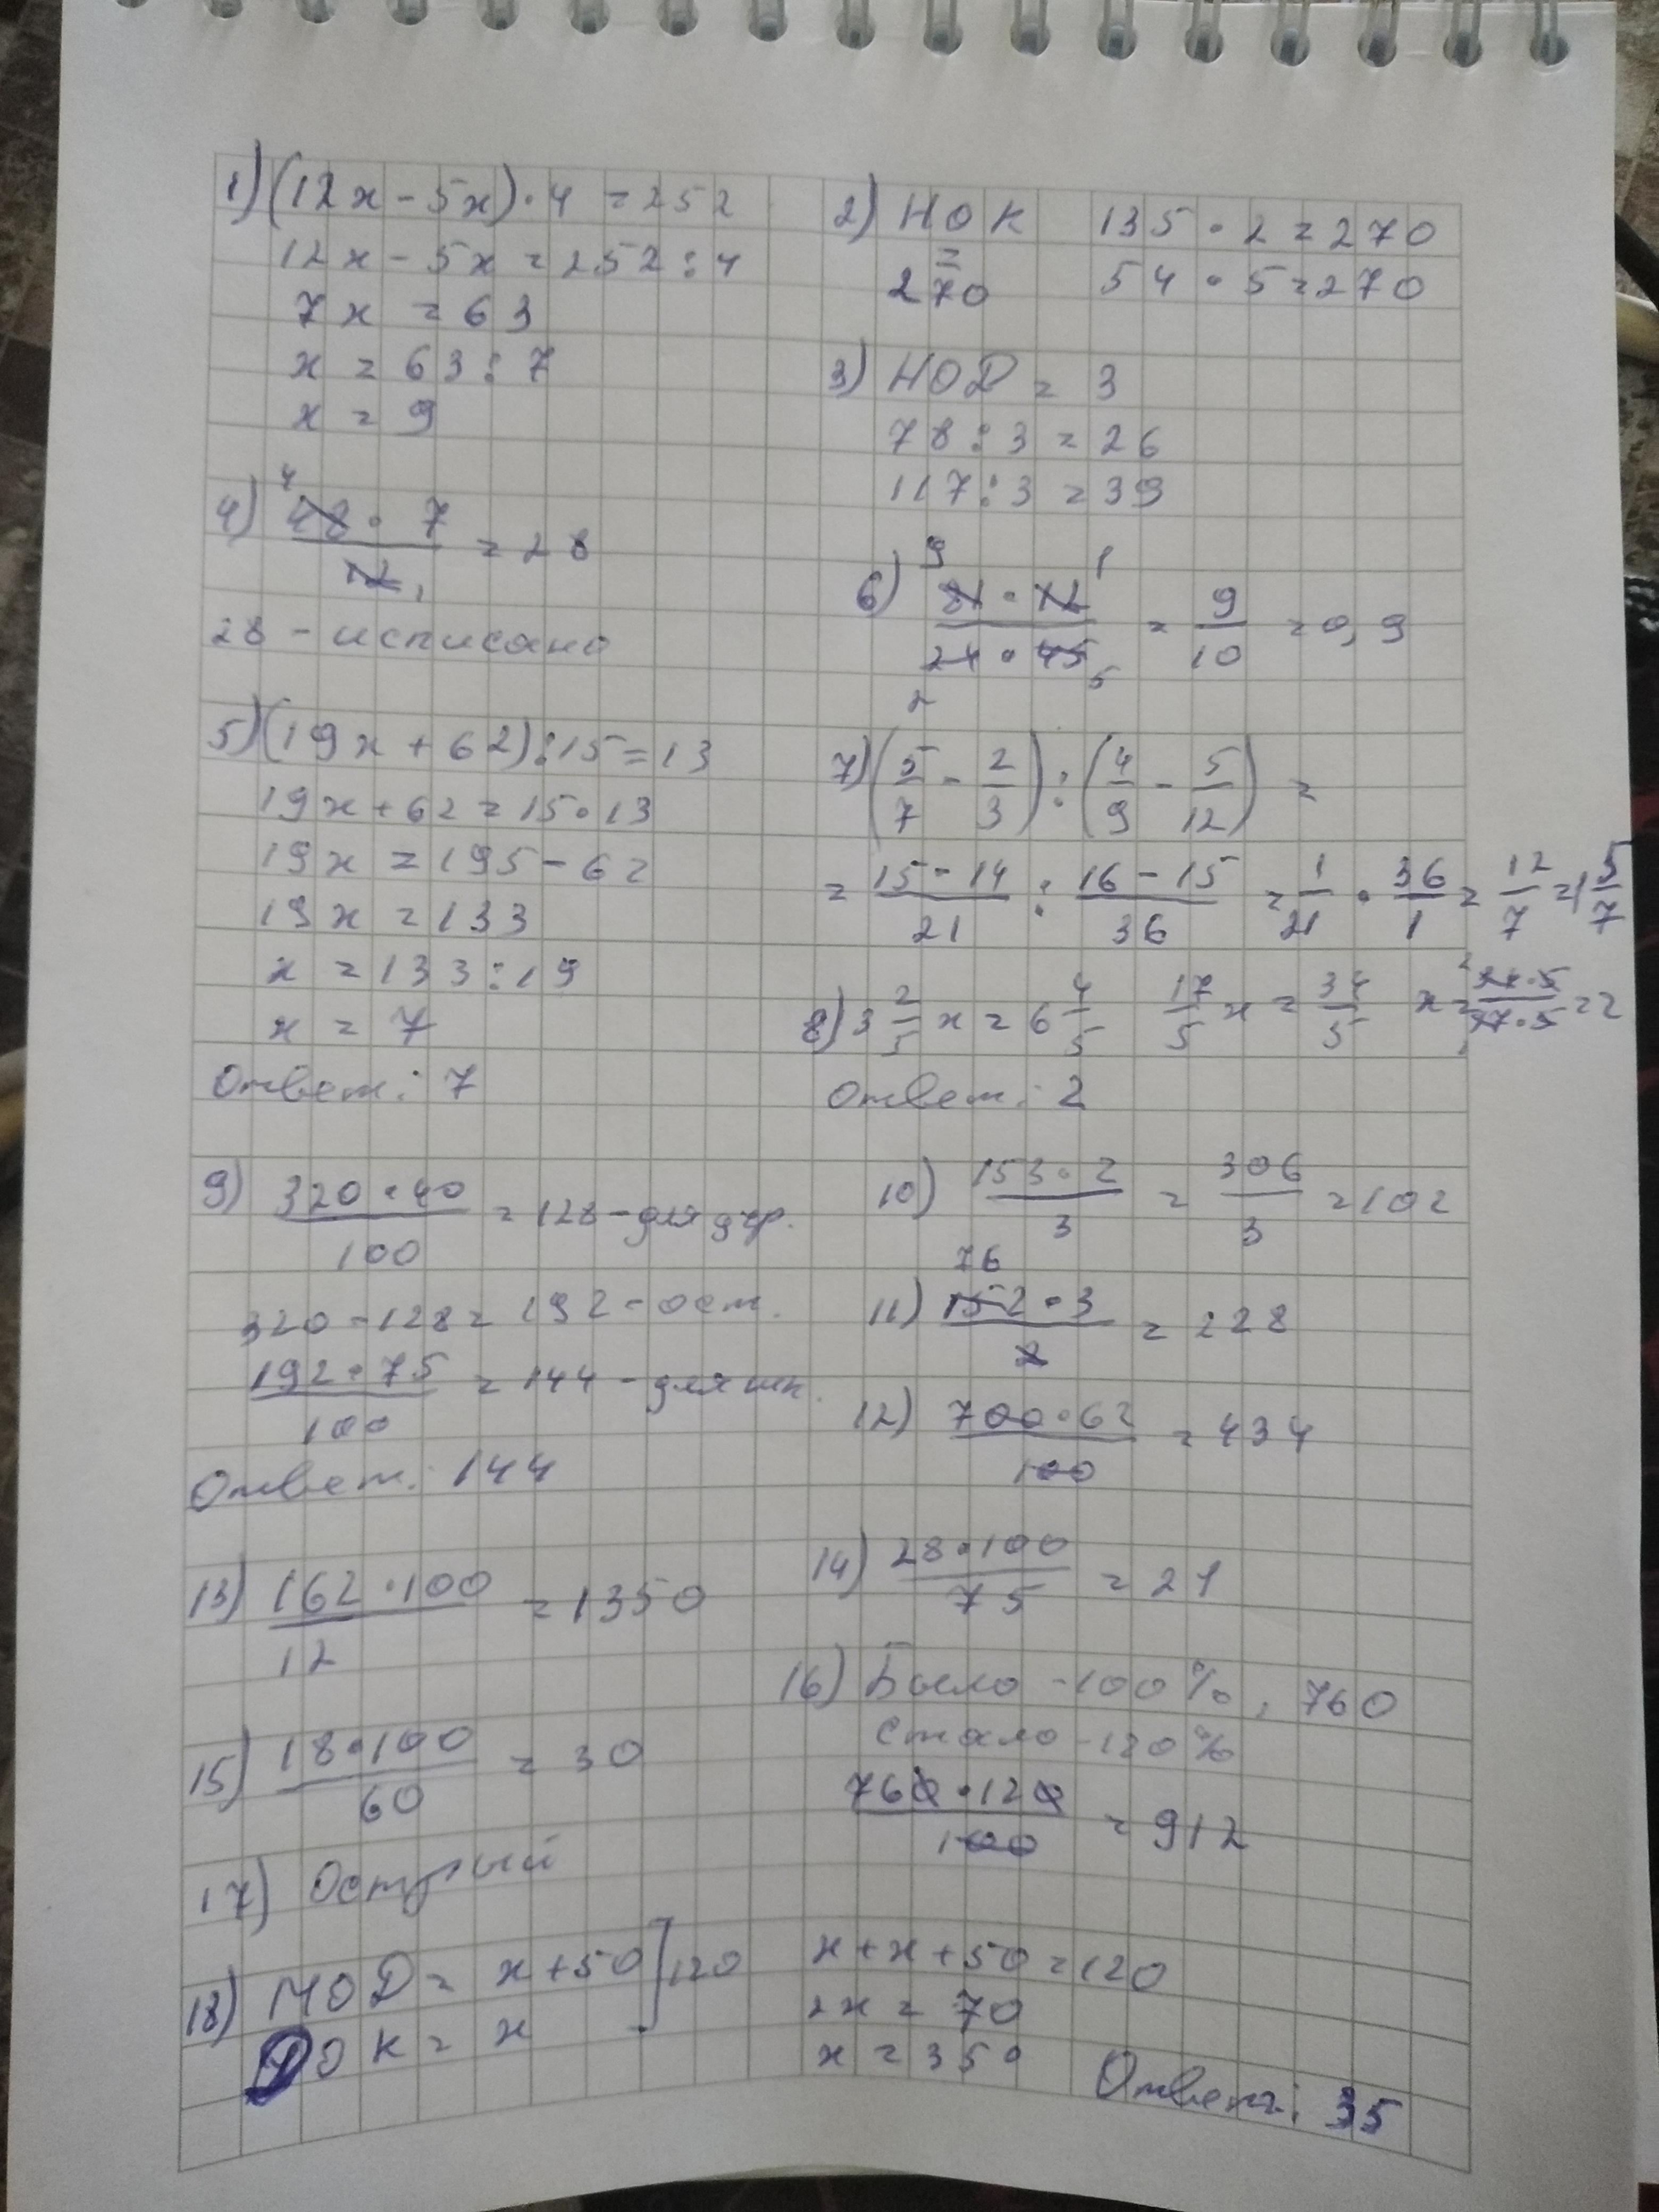 1) (12x - 5x) · 4 = 252
12x - 5x = 252 : 4
7x = 63
x = 63 : 7
x = 9
2) НОК 135 · 2 = 270
= 54 · 5 = 270
270
3) НОД = 3
78 : 3 = 26
117 : 3 = 39
4
4) 48 · 7 / 12 1 = 28
28 - исписано
5) (19x + 62) : 15 = 13
19x + 62 = 15 · 13
19x = 195 - 62
19x = 133
x = 133 : 19
x = 7
Ответ: 7
9 1
6) 81 · 12 / 24 · 45 = 9/10 = 0,9
2 5
7) (5/7 - 2/3) : (4/9 - 5/12) =
= 15 - 14 / 21 : 16 - 15 / 36 = 1/21 · 36/1 = 12/7 = 1 5/7
8) 3 2/5 x = 6 4/5 17/5 x = 34/5 x = 2 34 · 5 / 17 · 5 1 = 2
Ответ: 2
9) 320 · 40 / 100 = 128 - для дер.
320 - 128 = 192 - ост.
192 · 75 / 100 = 144 - для шк.
Ответ: 144
10) 153 · 2 / 3 = 306 / 3 = 102
76
11) 152 · 3 / 2 = 228
12) 700 · 62 / 100 = 434
13) 162 · 100 / 12 = 1350
14) 28 · 100 / 75 = 21
15) 18 · 100 / 60 = 30
16) Было - 100%, 760
Стало - 120%
760 · 120 / 100 = 912
17) Острый
18) MOD = x + 50 ] 120
DOK = x
x + x + 50 = 120
2x = 70
x = 35°
Ответ: 35